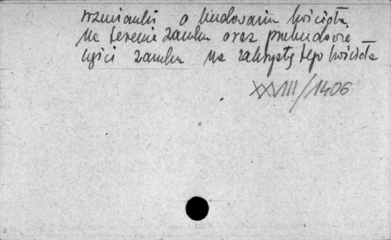 wzmianki o budowaniu kościoła
na terenie zamku oraz przebudowie
części zamku na zakrystę tego kościoła
XXVIII/1406